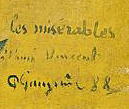 les misérables
à l'ami Vincent
P Gauguin 88